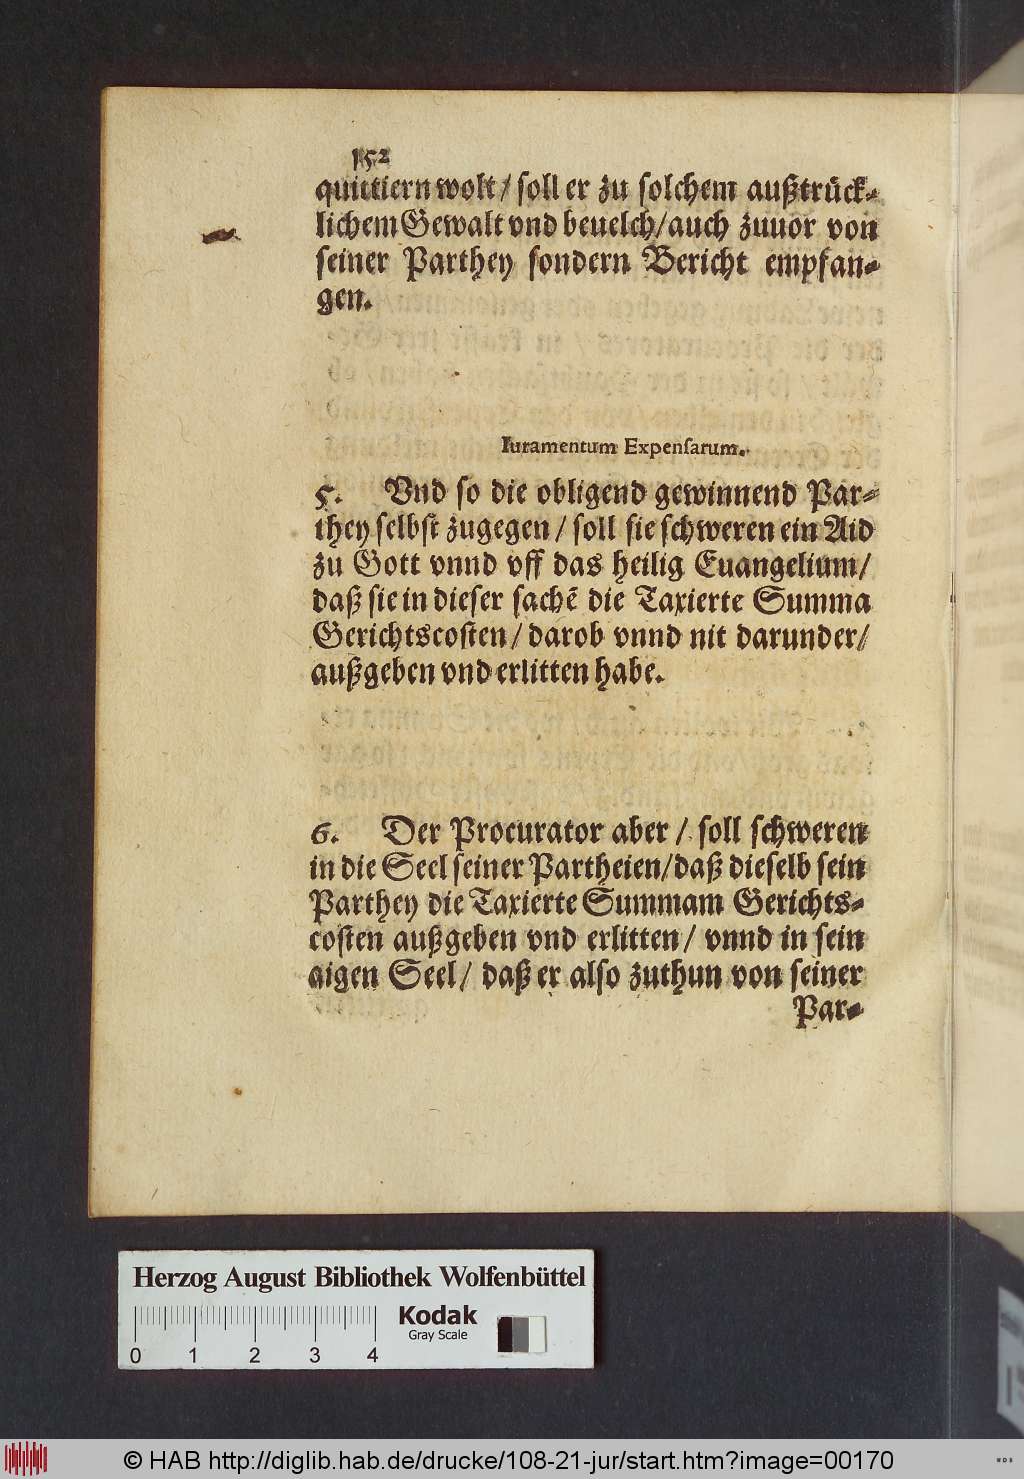 152
quittiern wolt / soll er zu solchem außtrück-
lichem Gewalt vnd beuelch / auch zuuor von
seiner Parthey sondern Bericht empfan-
gen.
Iuramentum Expensarum.
5. Vnd so die obligend gewinnend Par-
they selbst zugegen / soll sie schweren ein Aid
zu Gott vnnd vff das heilig Euangelium /
daß sie in dieser sachẽ die Taxierte Summa
Gerichtscosten / darob vnnd nit darunder /
außgeben vnd erlitten habe.
6. Der Procurator aber / soll schweren
in die Seel seiner Partheien / daß dieselb sein
Parthey die Taxierte Summam Gerichts-
costen außgeben vnd erlitten / vnnd in sein
aigen Seel / daß er also zuthun von seiner
Par-
Herzog August Bibliothek Wolfenbüttel
Kodak
Gray Scale
0 1 2 3 4
© HAB http://diglib.hab.de/drucke/108-21-jur/start.htm?image=00170